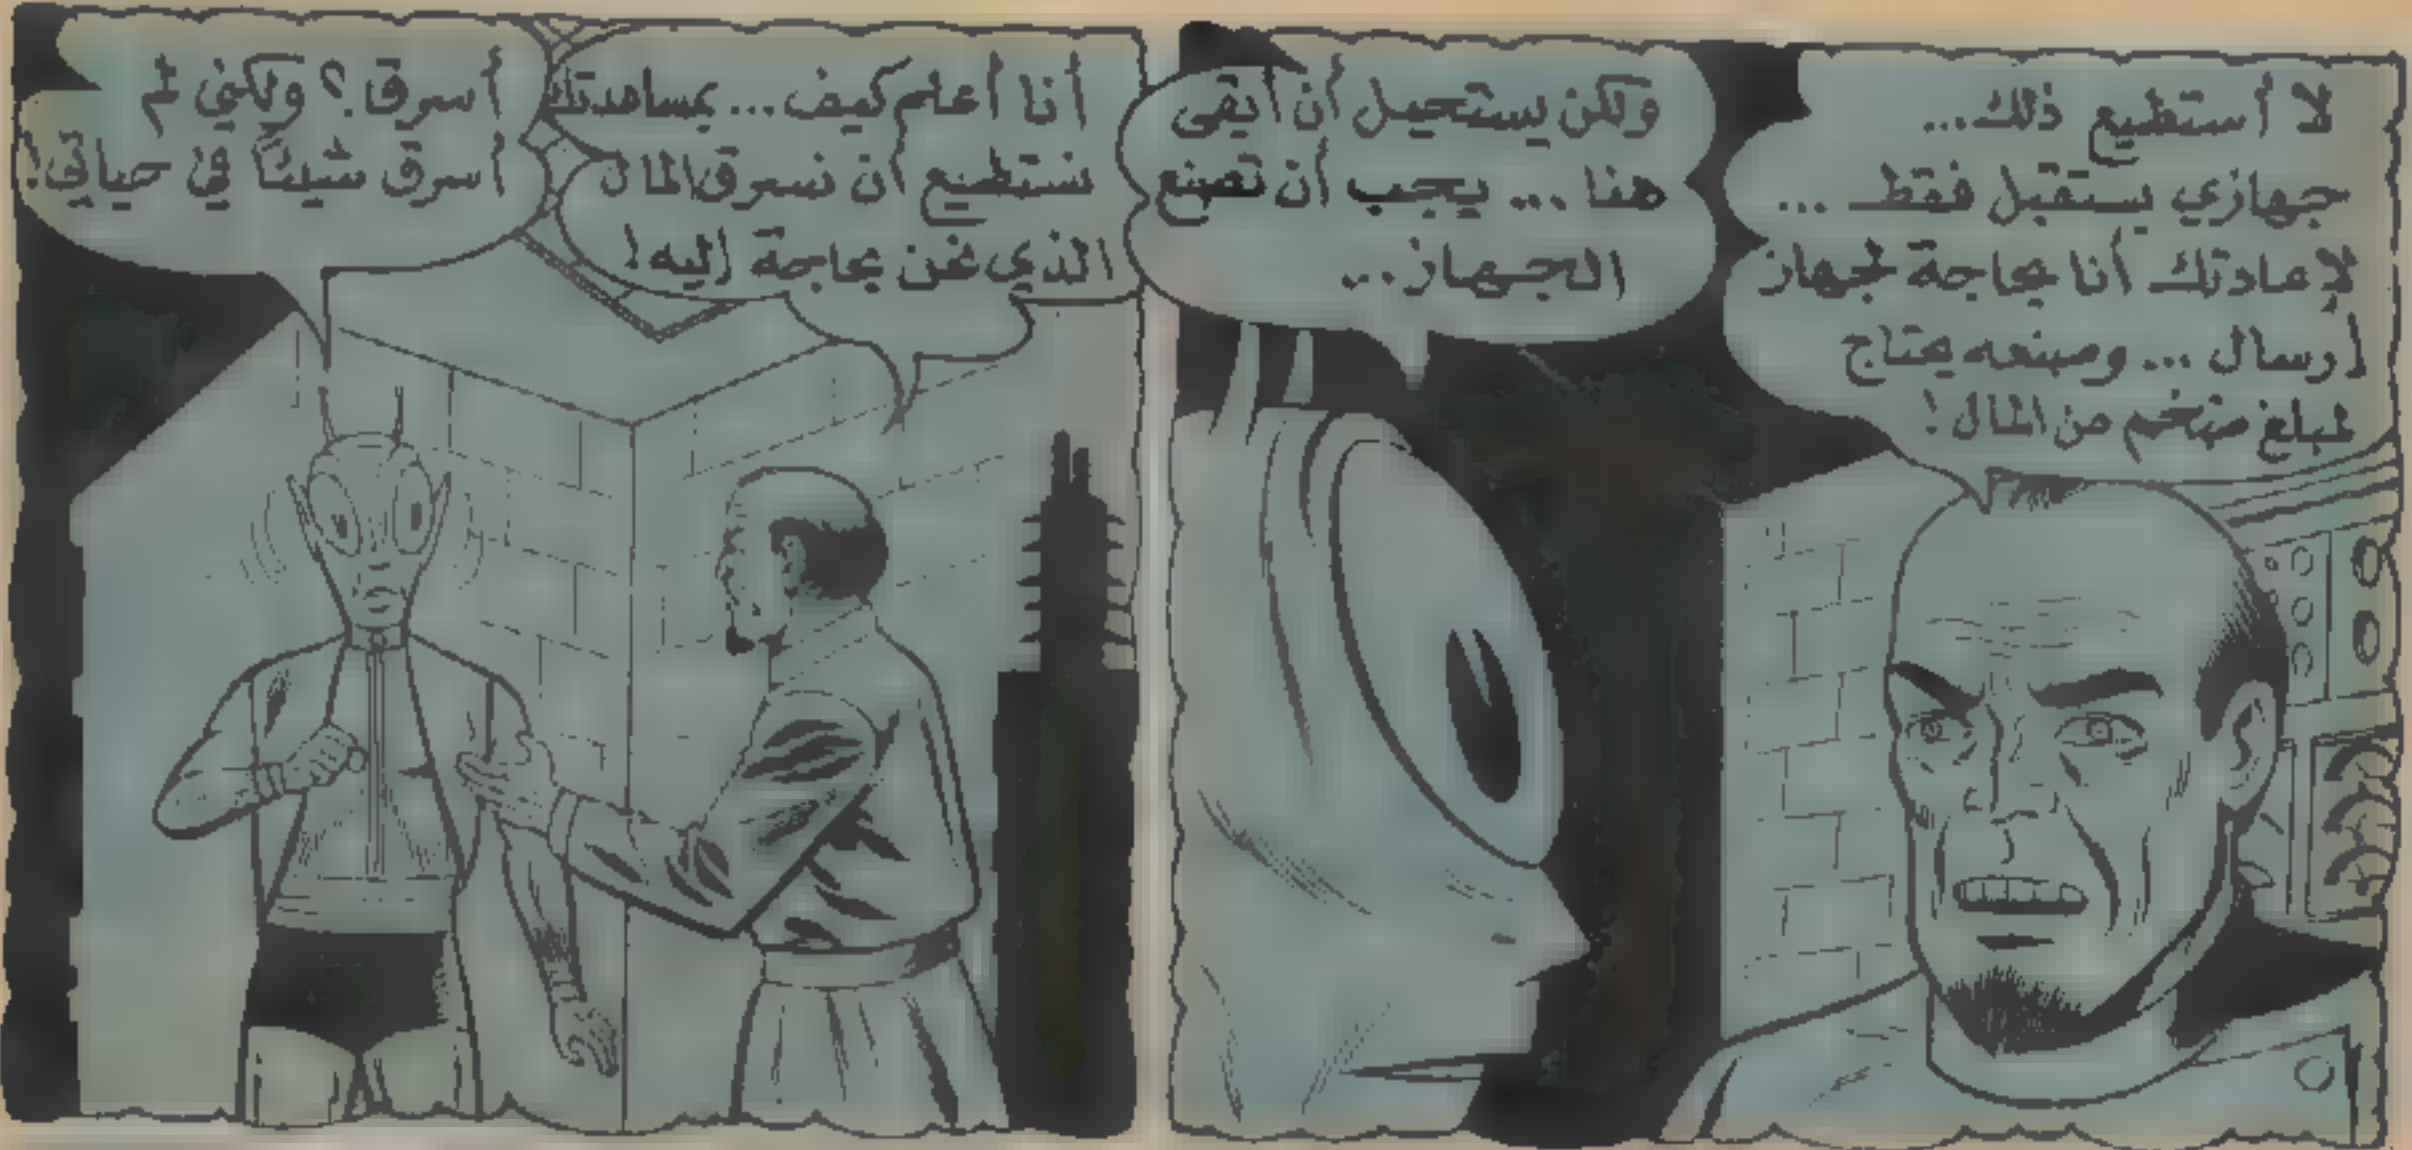 لا أستطيع ذلك...
جهازي يستقبل فقط ...
لإعادتك أنا بحاجة لجهاز
إرسال ... وصنعه يحتاج
لمبلغ ضخم من المال !
ولكن يستحيل أن أبقى
هنا ... يجب أن تصنع
الجهاز...
أنا أعلم كيف... بمساعدتك
نستطيع أن نسرق المال
الذي نحن بحاجة إليه !
أسرق ؟ ولكني لم
أسرق شيئاً في حياتي !